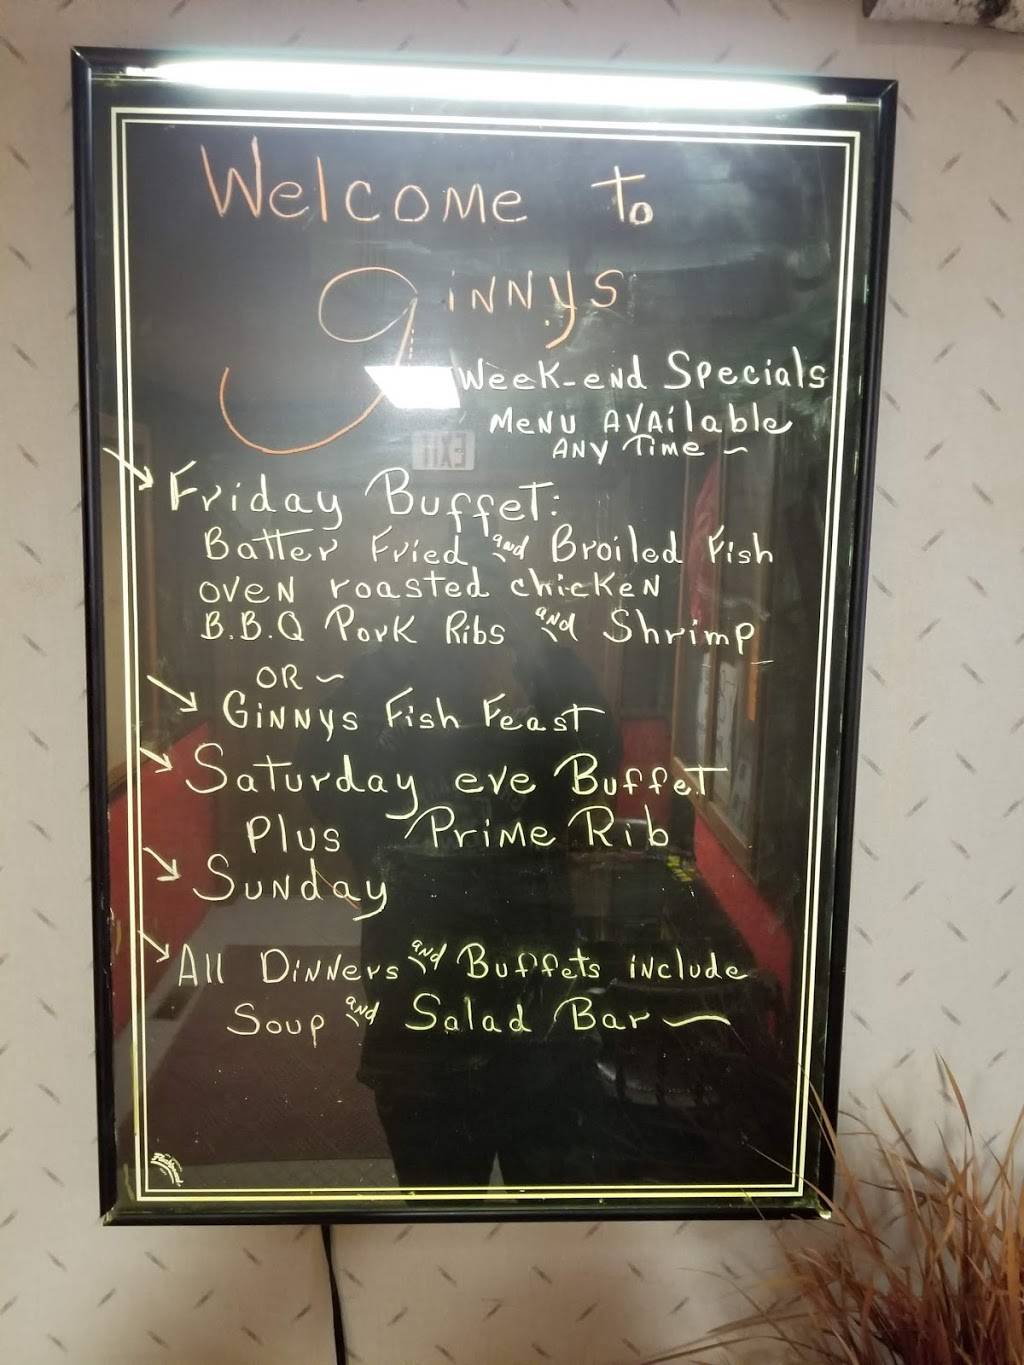 Welcome to
Ginnys
Week-end Specials
Menu Available
Any Time ~
Friday Buffet:
Batter Fried and Broiled Fish
oven roasted chicken
B.B.Q Pork Ribs and Shrimp
OR ~
Ginnys Fish Feast
Saturday eve Buffet
Plus Prime Rib
Sunday
All Dinners and Buffets include
Soup and Salad Bar ~
EXIT